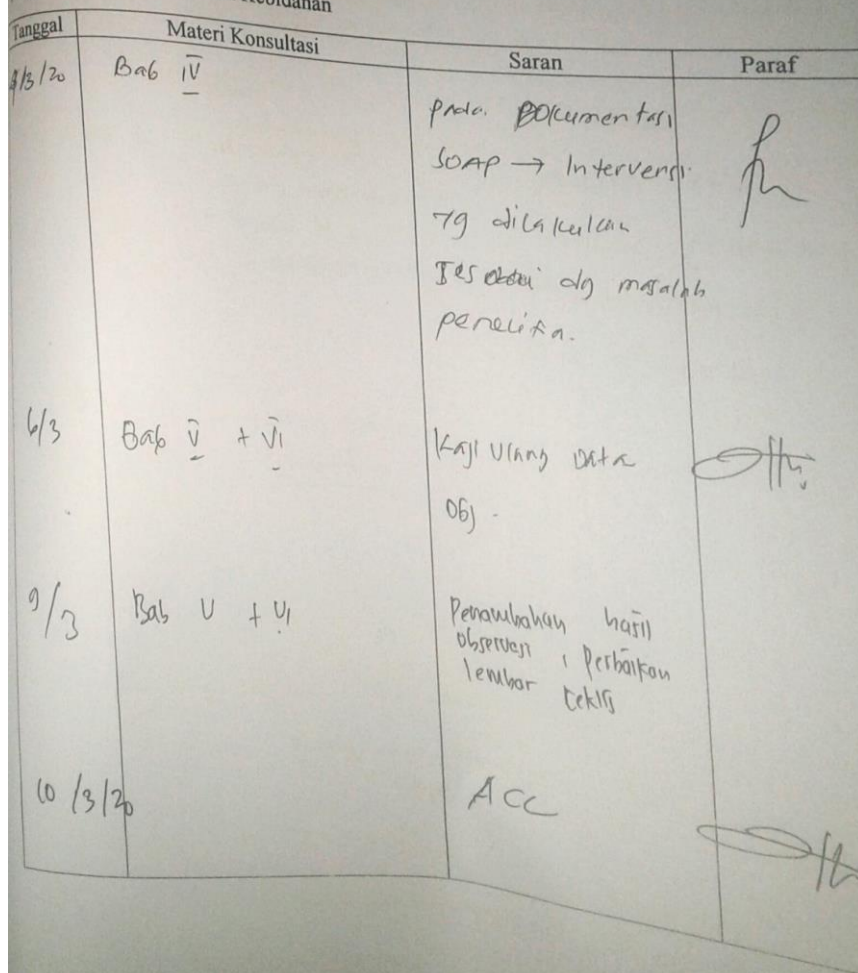 Tanggal Materi Konsultasi Saran Paraf
/3/20 Bab IV
pada Dokumentasi
SOAP → Intervensi
yg dilakukan
dg masalah
6/3 Bab V + VI Kaji Ulang Data
Obj.
9/3 Bab V + VI Penambahan hasil
observasi, Perbaikan
lembar Ceklis
10/3/20 ACC